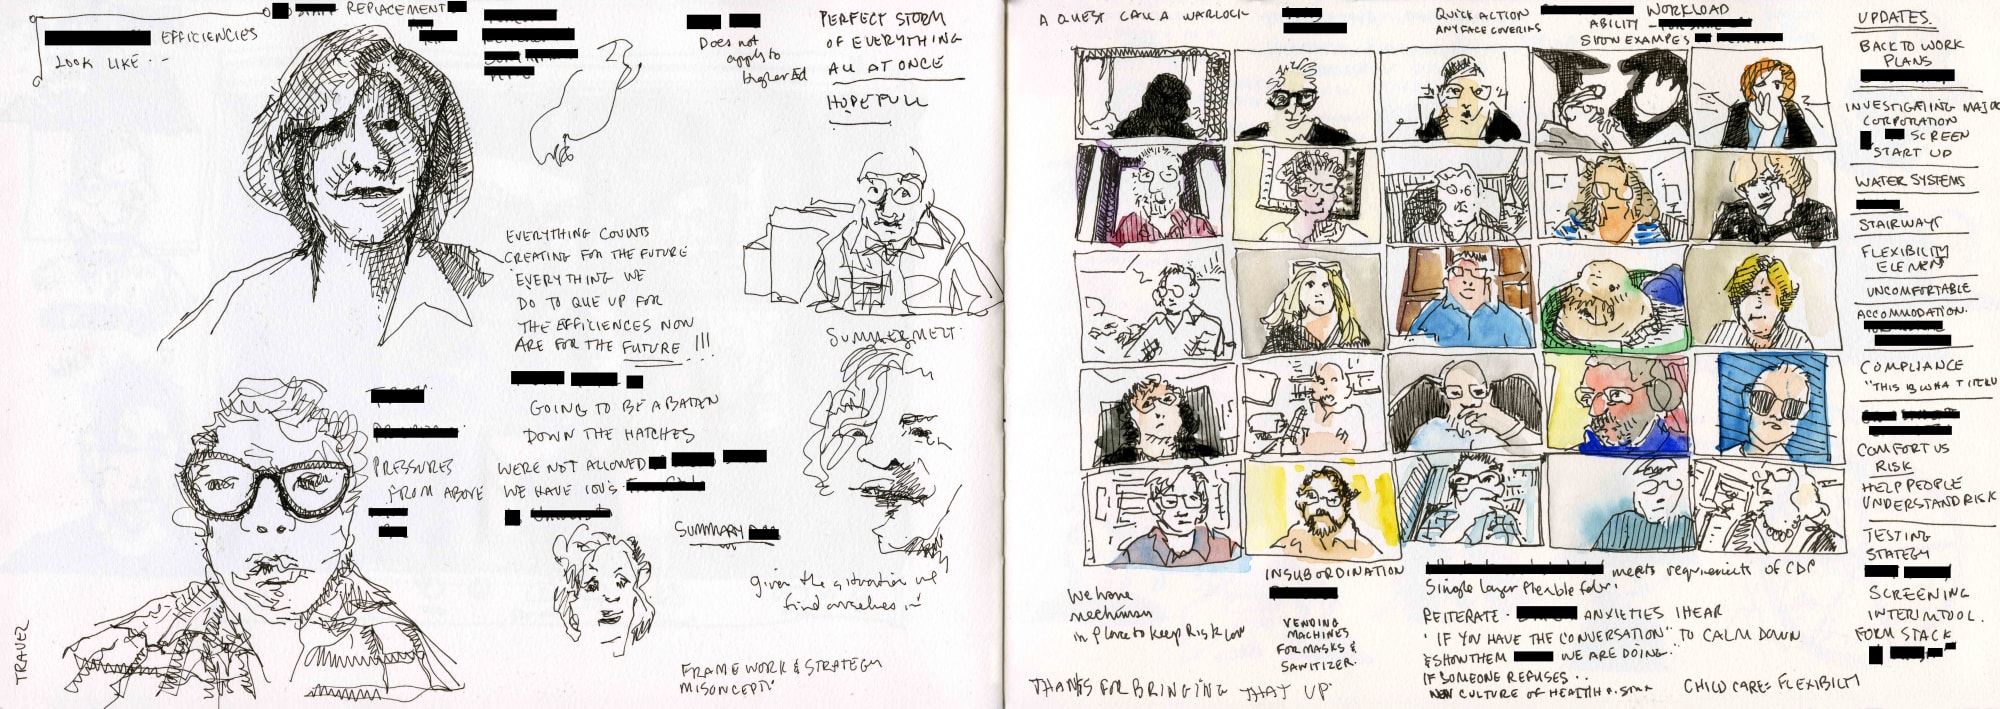 STAFF REPLACEMENT
EFFICIENCIES
LOOK LIKE --
Does not
apply to
Higher Ed
PERFECT STORM
OF EVERYTHING
ALL AT ONCE
HOPEFULL
EVERYTHING COUNTS
CREATING FOR THE FUTURE
EVERYTHING WE
DO TO QUE UP FOR
THE EFFICIENCES NOW
ARE FOR THE FUTURE !!!
SUMMER MELT.
GOING TO BE A BATEN
DOWN THE HATCHES
PRESSURES
FROM ABOVE
WERE NOT ALLOWED
WE HAVE IOU'S
SUMMARY
given the situation we
find ourselves in
FRAMEWORK & STRATEGY
TRAVER
A QUEST CALL A WARLOCK
QUICK ACTION
ANY FACE COVERING
WORKLOAD
ABILITY -
SHOW EXAMPLES
UPDATES.
BACK TO WORK
PLANS
INVESTIGATING MAJOR
CORPORATION
SCREEN
START UP
WATER SYSTEMS
STAIRWAYS
FLEXIBILITY
ELEMENT
UNCOMFORTABLE
ACCOMMODATION.
COMPLIANCE
"THIS IS WHAT
COMFORT US
RISK
HELP PEOPLE
UNDERSTAND RISK
TESTING
STATEGY
SCREENING
INTERIM TOOL.
FORM STACK
We have
mechanism
in place to keep Risk low
INSUBORDINATION
VENDING
MACHINES
FOR MASKS &
SANITIZER.
meets requirements of CDC
Single layer flexible
REITERATE - ANXIETIES I HEAR
"IF YOU HAVE THE CONVERSATION" TO CALM DOWN
& SHOW THEM WE ARE DOING."
IF SOMEONE REFUSES..
NEW CULTURE OF HEALTH
CHILD CARE = FLEXIBILTY
THANKS FOR BRINGING THAT UP.